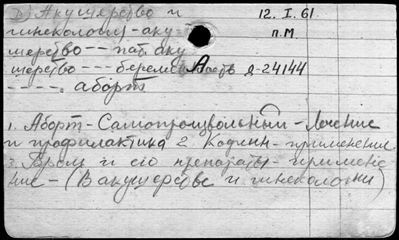 D) Акушерство и 12. I. 61.
гинекология - аку п.М.
шерство --- пат. аку
шерство --- беременность Д-24144
- - - -. аборт
А
1. Аборт - Самопроизвольный - лечение
и профилактика 2. Кодлин - применение
3. Бром и его препараты - примене
ние - (В акушерстве и гинекологии)